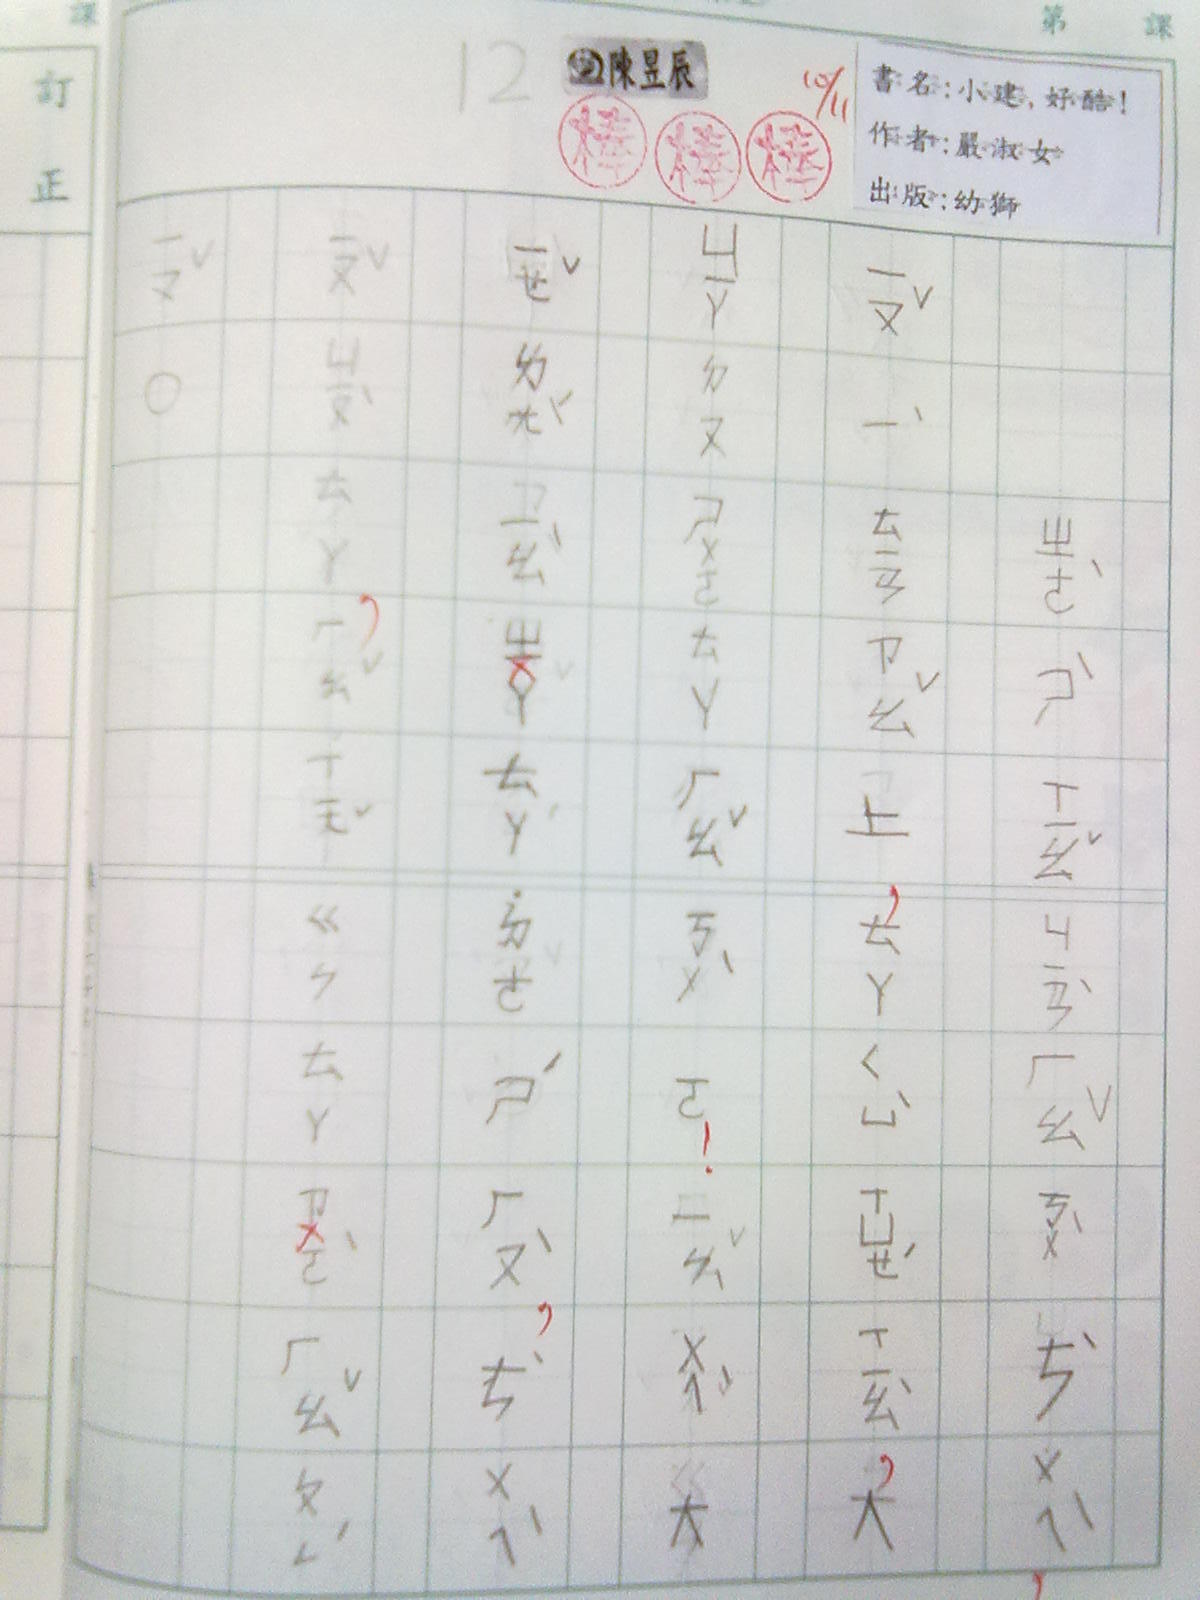 第 課
訂正
12 陳昱辰 10/11
棒 棒 棒
書名:小建,好酷!
作者:嚴淑女
出版:幼獅
ㄓㄜˋ ㄕˋ ㄒㄧㄠˇ ㄐㄧㄢˋ ㄏㄠˇ ㄎㄨˋ ㄘˋ ㄨㄟˋ ,
ㄧㄡˇ ㄧˋ ㄊㄧㄢ ㄗㄠˇ 上 , ㄊㄚ ㄑㄩˋ ㄒㄩㄝˊ ㄒㄧㄠˋ , 大
ㄐㄧㄚ ㄉㄡ ㄕㄨㄛ ㄊㄚ ㄏㄠˇ ㄎㄨˋ ㄛ ! ㄨㄟˊ 大
ㄧㄝˇ ㄌㄤˊ ㄧㄠˋ ㄓㄨㄚ ㄊㄚ ˙ㄉㄜ ㄕˊ ㄏㄡˋ , ㄘˋ ㄨㄟˋ
ㄧㄡˇ ㄐㄧㄡˋ ㄊㄚ , ㄏㄠˇ ㄒㄧㄤˇ ㄍㄣ ㄊㄚ ㄗㄨㄛˋ ㄏㄠˇ ㄆㄥˊ
ㄧㄡˇ ○